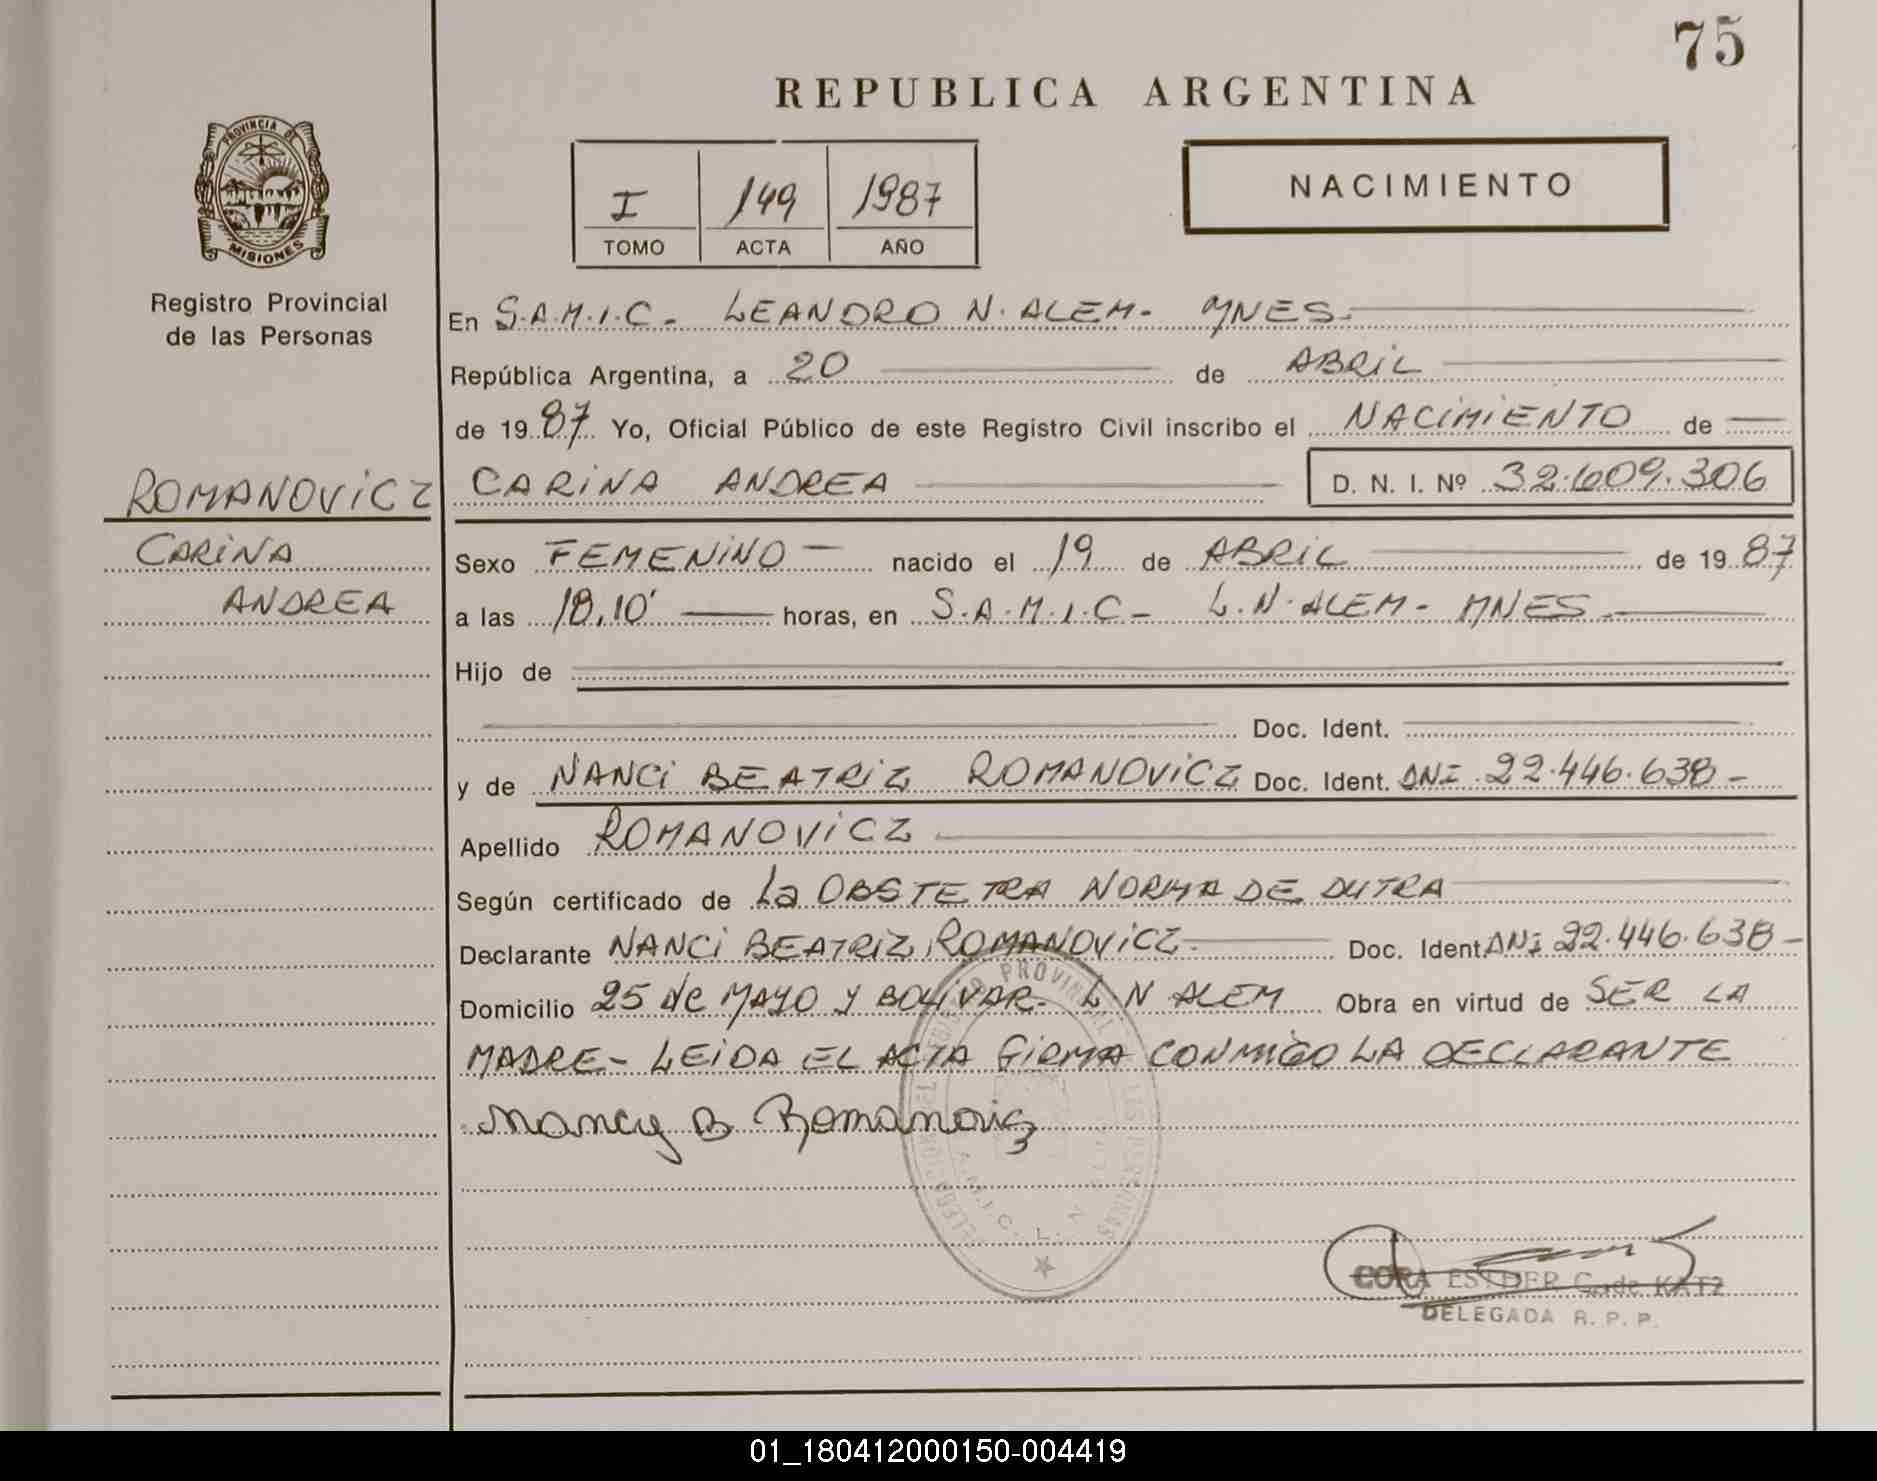 75
REPUBLICA ARGENTINA
PROVINCIA DE
MISIONES
Registro Provincial
de las Personas
I 149 1987
TOMO ACTA AÑO
NACIMIENTO
En S.A.M.I.C- LEANDRO N. ALEM- MNES.
República Argentina, a 20 de ABRIL
de 1987 Yo, Oficial Público de este Registro Civil inscribo el NACIMIENTO de
ROMANOVICZ CARINA ANDREA D. N. I. Nº 32.609.306
CARINA
ANDREA
Sexo FEMENINO nacido el 19 de ABRIL de 1987
a las 18,10' horas, en S.A.M.I.C- L.N.ALEM- MNES.
Hijo de
Doc. Ident.
y de NANCI BEATRIZ ROMANOVICZ Doc. Ident. DNI 22.446.638-
Apellido ROMANOVICZ
Según certificado de La OBSTETRA NORMA DE DUTRA
Declarante NANCI BEATRIZ ROMANOVICZ. Doc. Ident DNI 22.446.638-
Domicilio 25 de MAYO Y BOLIVAR- L N ALEM Obra en virtud de SER LA
MADRE- LEIDA EL ACTA FIRMA CONMIGO LA DECLARANTE
Nancy B Romanovicz
CORA ESTHER G. de KATZ
DELEGADA R. P. P.
01_180412000150-004419